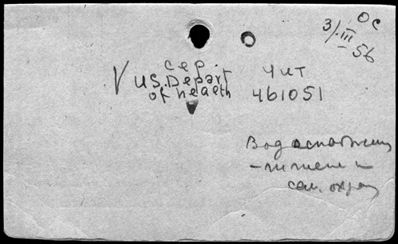 ОС
3/III
56
сер
V U.S. Depart
of health
Чит
461051
Водоснабжени
- гигиена и
сан. охран